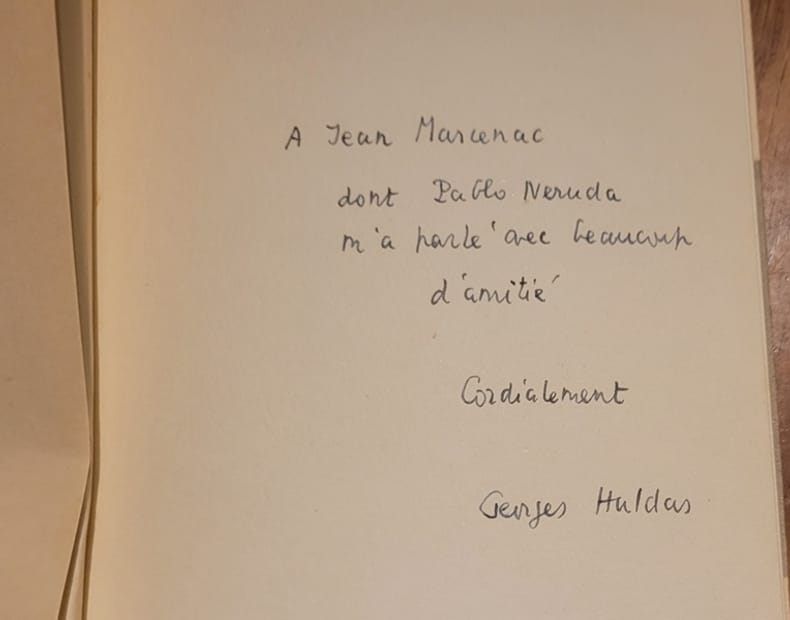 A Jean Marcenac
dont Pablo Neruda
m'a parlé avec beaucoup
d'amitié
Cordialement
Georges Haldas